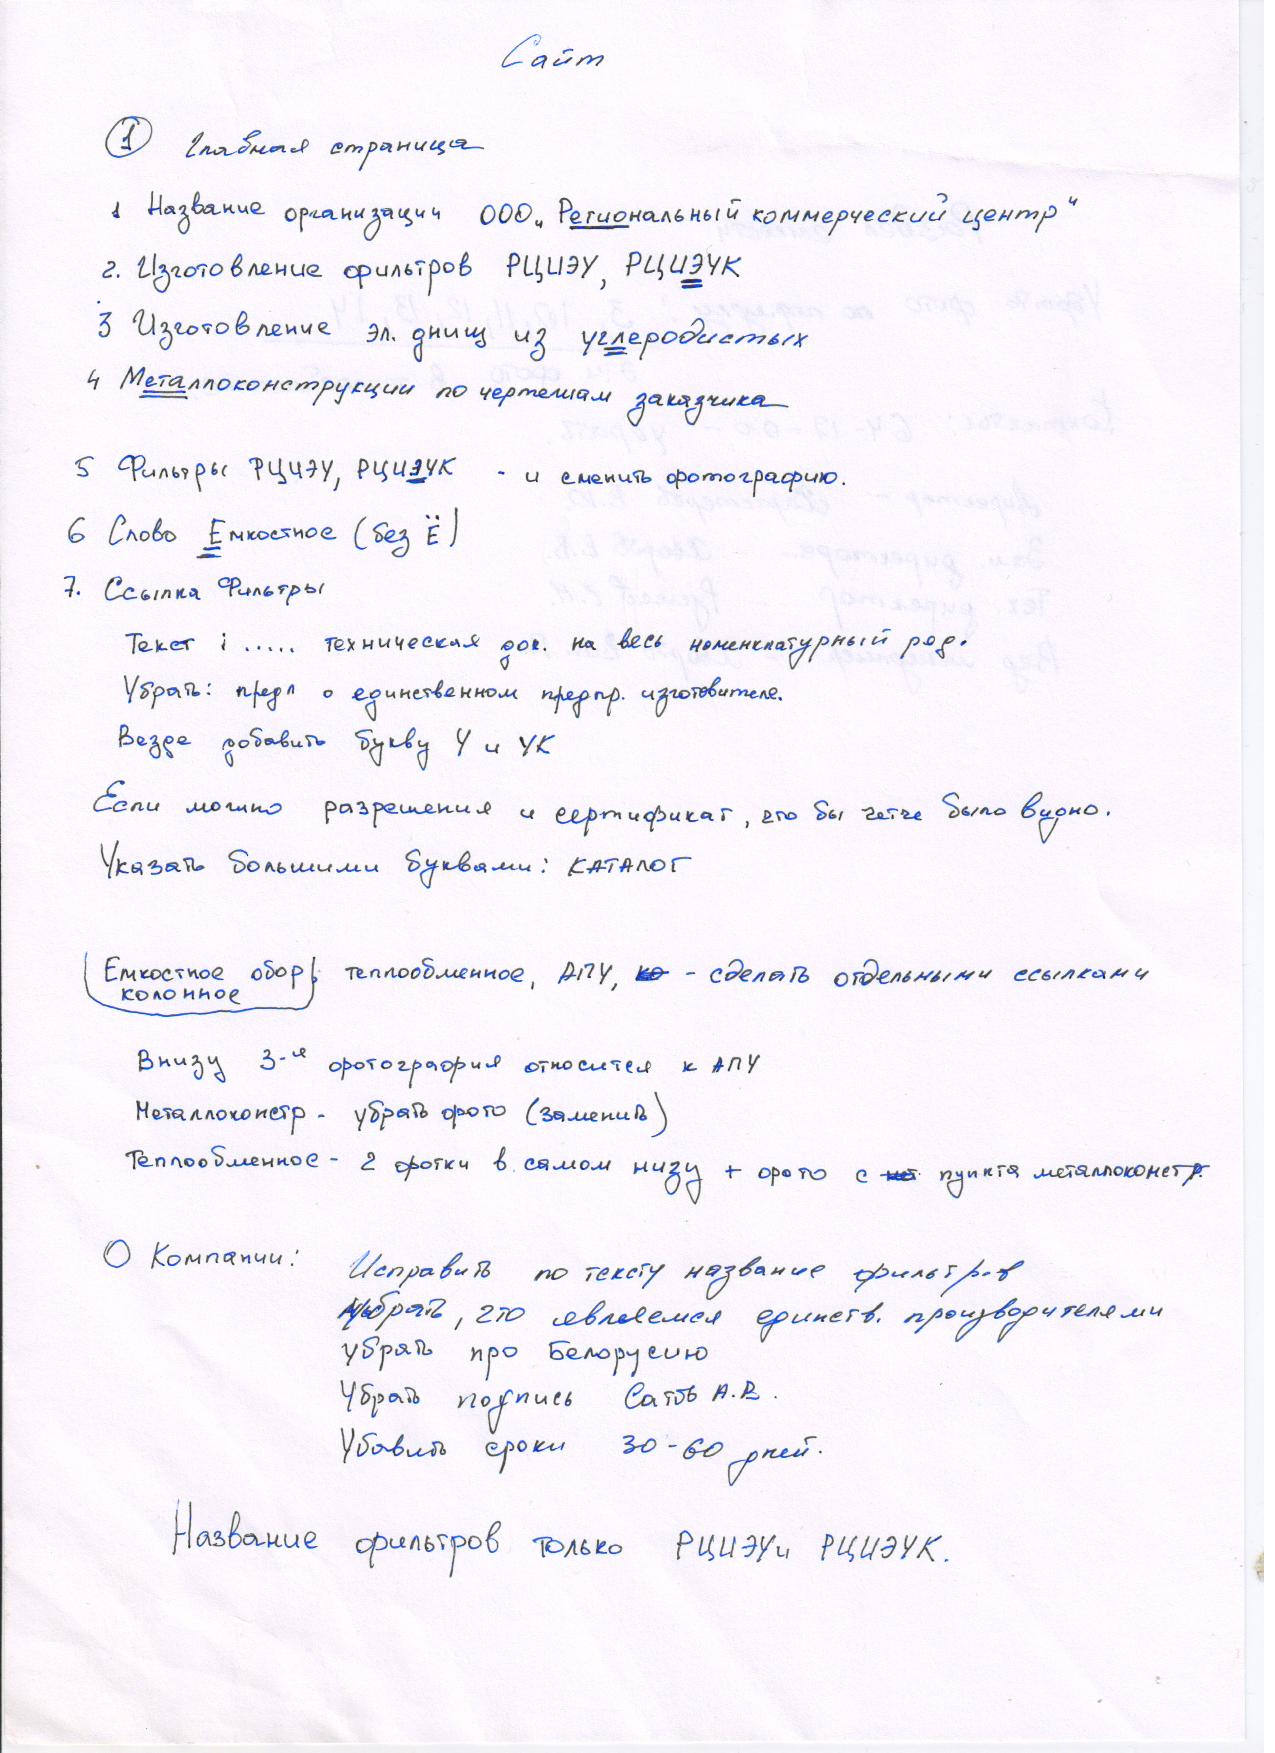 Сайт
1 Главная страница
1 Название организации ООО „Региональный коммерческий центр"
2. Изготовление фильтров РЦИЭУ, РЦИЭУК
3 Изготовление эл. днищ из углеродистых
4 Металлоконструкции по чертежам заказчика
5 Фильтры РЦИЭУ, РЦИЭУК - и сменить фотографию.
6 Слово Емкостное (без Ё)
7. Ссылка Фильтры
Текст : ..... техническая док. на весь номенклатурный ряд.
Убрать: предл о единственном предпр. изготовителе.
Везде добавить букву У и УК
Если можно разрешения и сертификат, что бы четче было видно.
Указать большими буквами: КАТАЛОГ
Емкостное обор, теплообменное, АПУ, - сделать отдельными ссылками
колонное
Внизу 3-я фотография относится к АПУ
Металлоконстр - убрать фото (заменить)
Теплообменное - 2 фотки в самом низу + фото с пункта металлоконстр.
О Компании: Исправить по тексту название фильтров
Убрать, что являемся единств. производителями
убрать про Белорусию
Убрать подпись А.В.
Убавить сроки 30-60 дней.
Название фильтров только РЦИЭУ и РЦИЭУК.